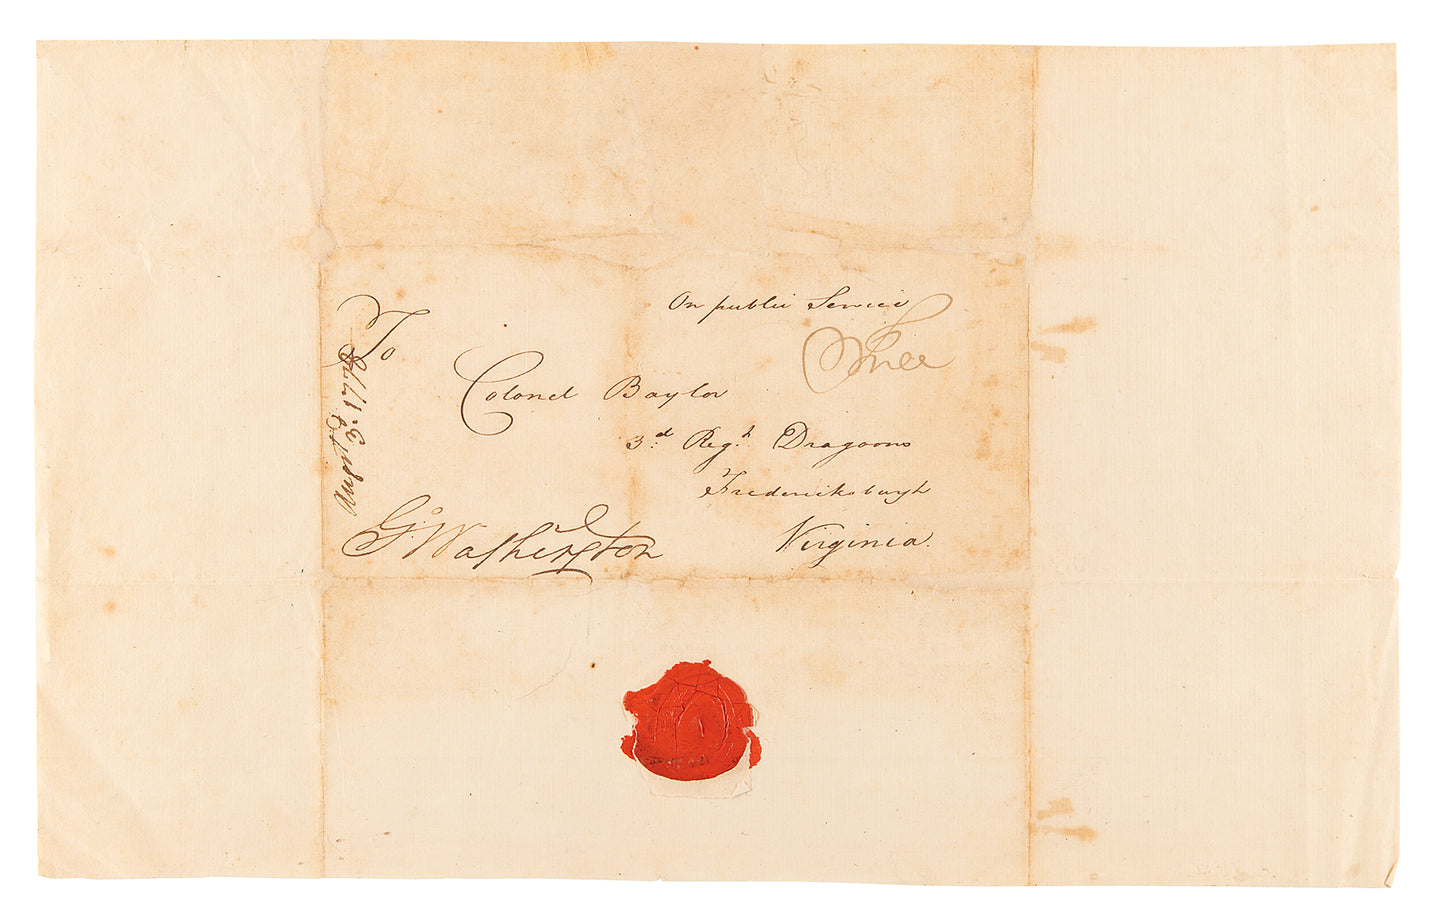 On public Service
Free
To
Colonel Baylor
3.d Reg.t Dragoons
Fredericksburgh
Virginia.
G:o Washington
August 3: 1777